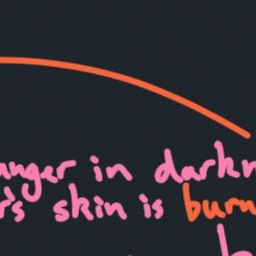 anger in darkn
r's skin is burn